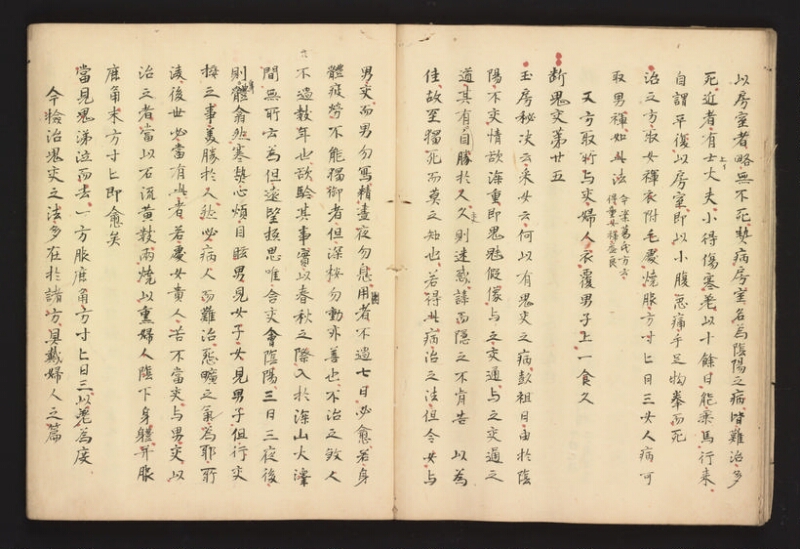 以房室者略無不死熱病房室名為陰陽之病皆難治多
死近者有士大夫小得傷寒差以十餘日能乘馬行来
自謂平復以房室即以小腹急痛手足拘拳而死
治之方取女褌衣附毛處燒服方寸匕日三女人病可
取男褌如此法
又方取所与交婦人衣覆男子上一食久
断鬼交第廿五
玉房秘决云采女云何以有鬼交之病彭祖曰由於陰
陽不交情欲深重即鬼魅假像与之交通与之交通之
道其有自勝於人久則迷惑諱而隱之不肯告以為
佳故至獨死而莫之知也若得此病治之法但令女与
男交而男勿寫精晝夜勿息用者不過七日必愈若身
體疲勞不能獨御者但深按勿動亦善也不治之煞人
不過數年也欲驗其事實以春秋之際入於深山大澤
間無所云為但遠望極思唯含交會陰陽三日三夜後
則體翕然寒熱心煩目眩男見女子女見男子但行交
接三事美勝於人然必病人而難治怨曠之氣為耶所
淩後世必當有此者若處女貴人苦不當交与男交以
治之者當以石流黄數兩燒以熏婦人陰下身體并服
鹿角末方寸匕即愈矣
當見鬼涕泣而去一方服鹿角方寸匕日三以差為度
今檢治鬼交之法多在於諸方具戴婦人之篇